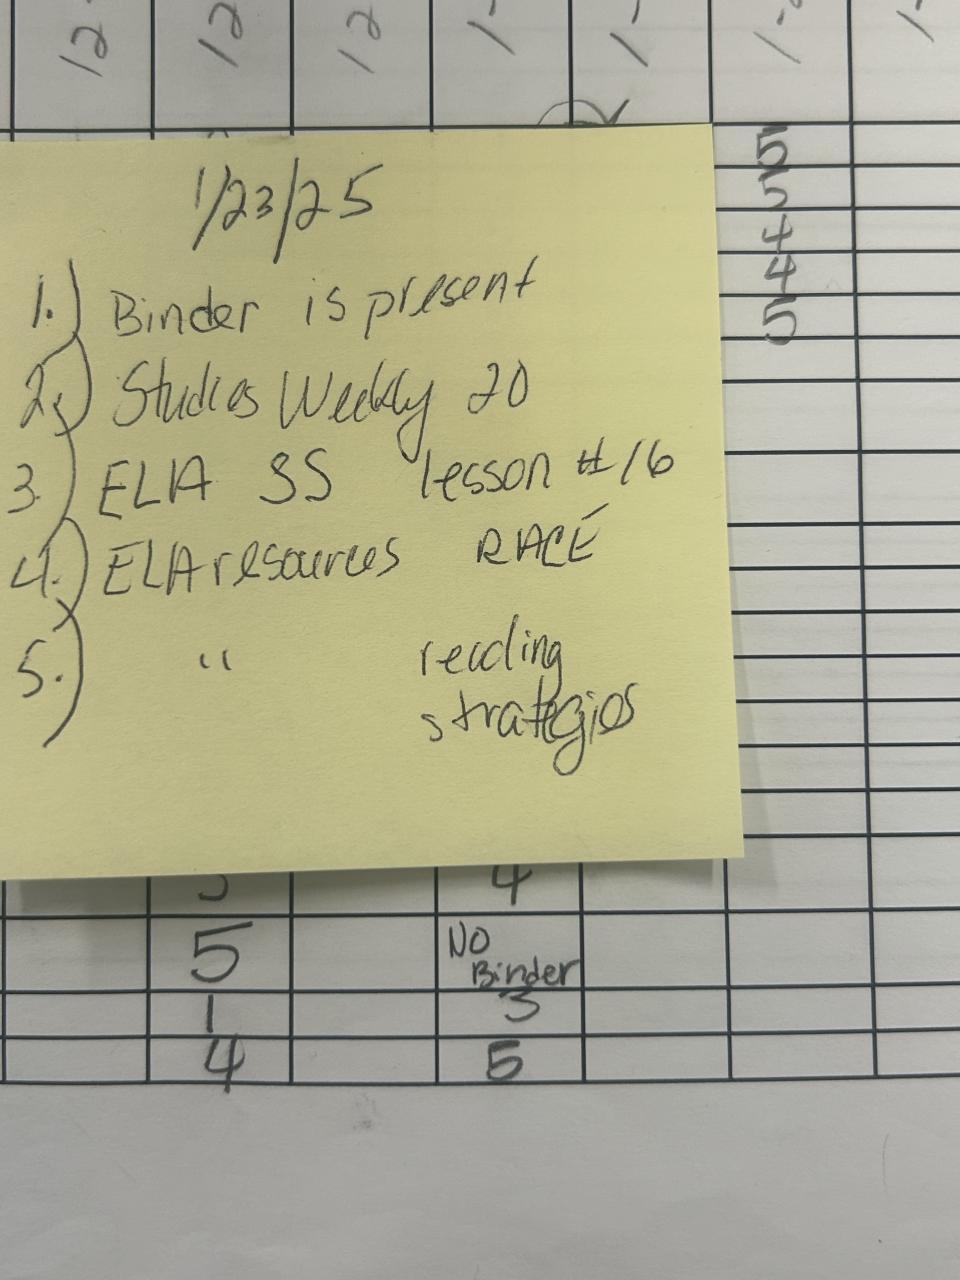 12 12 12 1- 1- 1-2 1-
1/23/25
1.) Binder is present
2.) Studies Weekly 20
3.) ELA SS lesson #16
4.) ELA resources RACE
5.) " reading
strategies
5
5
4
4
5
4
5 No
Binder
1 3
4 5